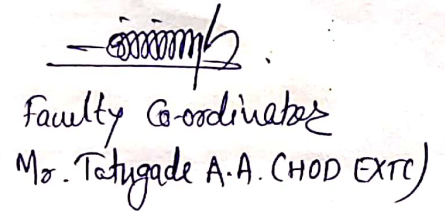 Faculty Co-ordinator
Mr. Tatugade A.A. (HOD EXTC)